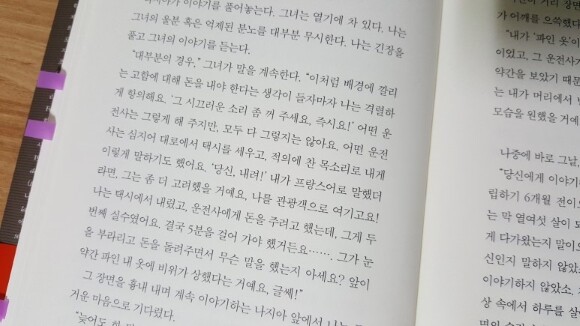 이야기를 풀어놓는다. 그녀는 열기에 차 있다. 나는
그녀의 울분 혹은 억제된 분노를 대부분 무시한다. 나는 긴장을
풀고 그녀의 이야기를 듣는다.
"대부분의 경우," 그녀가 말을 계속한다. "이처럼 배경에 깔리
는 고함에 대해 돈을 내야 한다는 생각이 들자마자 나는 격렬하
게 항의해요. '그 시끄러운 소리 좀 꺼 주세요, 즉시요!' 어떤 운
전사는 그렇게 해 주지만, 모두 다 그렇지는 않아요. 어떤 운전
사는 심지어 대로에서 택시를 세우고, 적의에 찬 목소리로 내게
이렇게 말하기도 했어요. '당신, 내려!' 내가 프랑스어로 말했더
라면, 그는 좀 더 고려했을 거예요, 나를 관광객으로 여기고요!
나는 택시에서 내렸고, 운전사에게 돈을 주려고 했는데, 그게 두
번째 실수였어요. 결국 5분을 걸어 가야 했거든요……. 그가 눈
을 부라리고 돈을 돌려주면서 무슨 말을 했는지 아세요? 앞이
약간 파인 내 옷에 비위가 상했다는 거예요, 글쎄!"
그 장면을 흉내 내며 계속 이야기하는 나지아 앞에서 나는
거운 마음으로 기다렸다.
거리 장면
가 어깨를 으쓱했
"내가 '파인 옷'이
이었고, 그 운전사가
약간을 보았기 때문
는 내가 머리에서
모습을 원했을 거예
나중에 바로 그날,
"당신에게 이야기
립하기 6개월 전이
는 막 열여섯 살이 되
게 다가왔는지 말이
신인지 말하지 않았
이야기하지 않았소.
상 속에서 하루를 살
면의